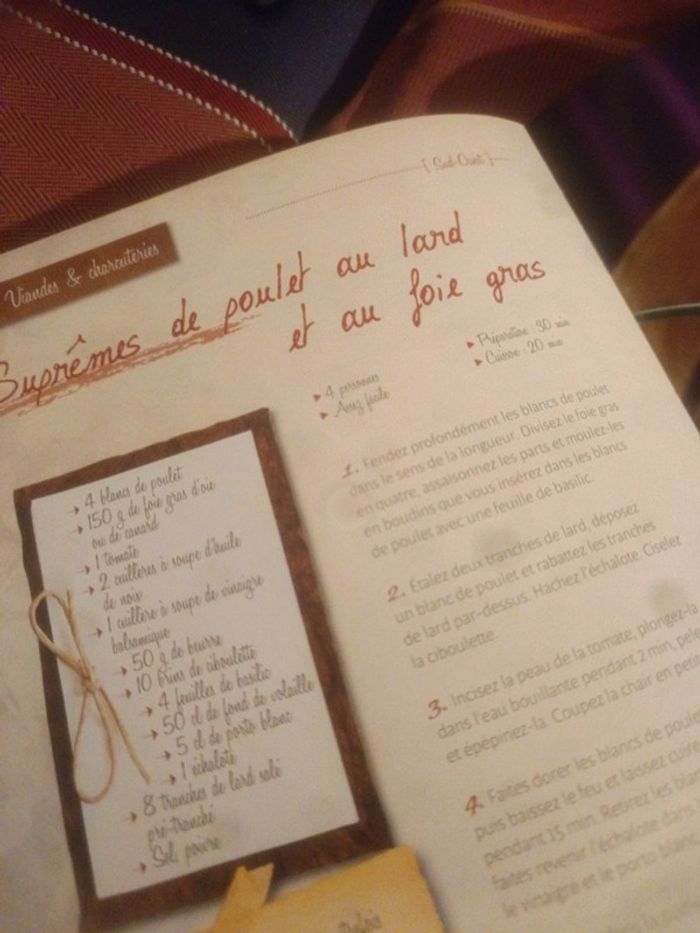 [ Sud-Ouest ]
Viandes & charcuteries
Suprêmes de poulet au lard
et au foie gras
4 personnes
Assez facile
Préparation : 30 min
Cuisson : 20 min
4 blancs de poulet
150 g de foie gras d'oie
ou de canard
1 tomate
2 cuillères à soupe d'huile
de noix
1 cuillère à soupe de vinaigre
balsamique
50 g de beurre
10 brins de ciboulette
4 feuilles de basilic
50 cl de fond de volaille
5 cl de porto blanc
1 échalote
8 tranches de lard salé
pré-tranché
Sel, poivre
1. Fendez profondément les blancs de poulet
dans le sens de la longueur. Divisez le foie gras
en quatre, assaisonnez les parts et moulez-les
en boudins que vous insérez dans les blancs
de poulet avec une feuille de basilic.
2. Étalez deux tranches de lard, déposez
un blanc de poulet et rabattez les tranches
de lard par-dessus. Hachez l'échalote. Ciselez
la ciboulette.
3. Incisez la peau de la tomate, plongez-la
dans l'eau bouillante pendant 2 min,
et épépinez-la. Coupez la chair en
4. Faites dorer les blancs de
puis baissez le feu et laissez
pendant 15 min. Retirez les
faites revenir l'échalote
le vinaigre et le porto